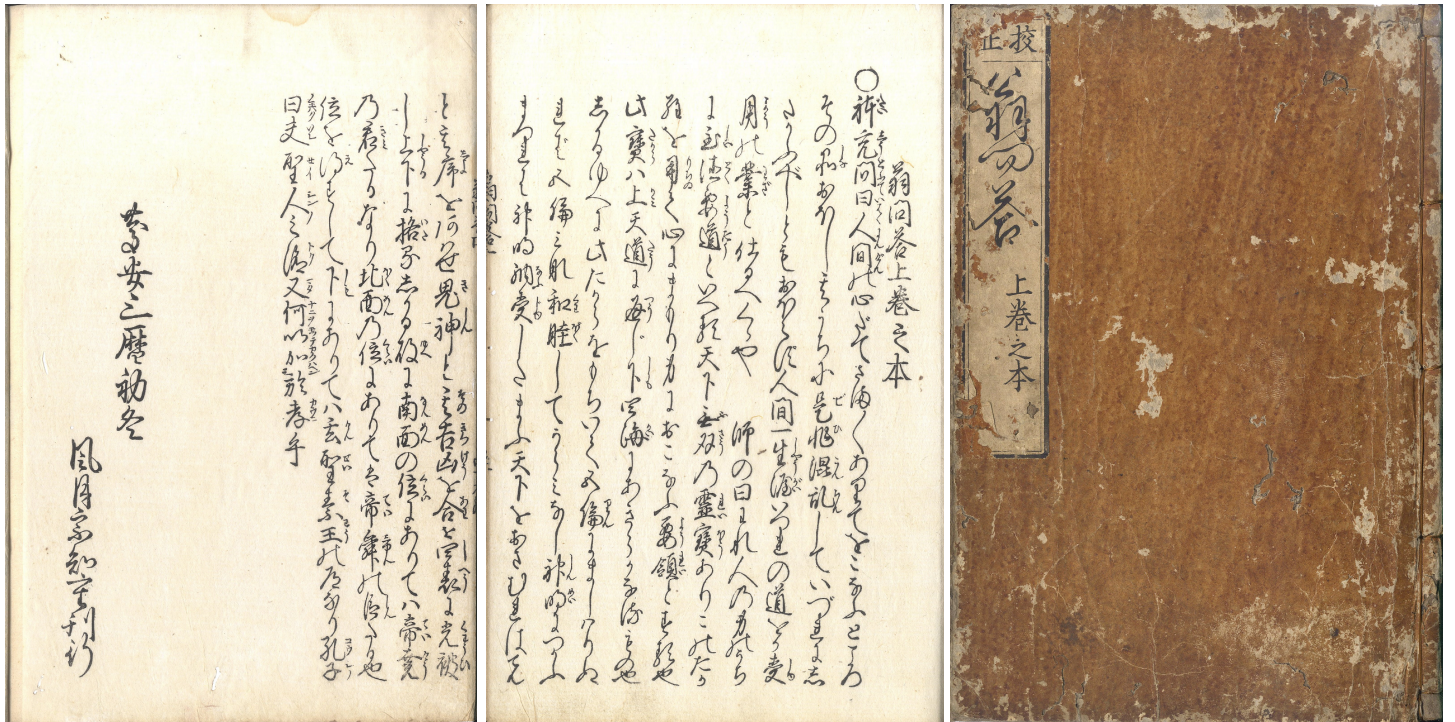 校正
翁問答
上巻之本
翁問答上巻之本
○体充問曰人間の心だてさま〱ありてをこなふところ
その品おほし其うちに是非混乱していづれに志
たがふべしともおぼえず人間一生涯いづれの道を受
用の業と仕るべくや 師の曰われ人の身のうち
に至徳要道といへる天下無双乃靈寶ありこのたか
らを用て心にまもり身におこなふ要領とする也
此寶ハ上天道に通じ下四海にあきらかなるもの也
しかるゆへに此たからをもちいて五倫にまじハりぬ
れば五倫みな和睦してうらみなし神明につかふ
まつれば神明納受したまふ天下をおさむればてん
と其序をあはせ鬼神と其吉凶を合せ四表に光被
し上下に格るしかる故に南面の位にありてハ帝堯
乃君たるなり北面乃位にありてハ帝舜の臣たる也
位を得ずして下にありてハ玄聖素王の道なり孔子
曰夫聖人之徳又何以加於孝乎
慶安三暦初冬
風月宗知重刊行